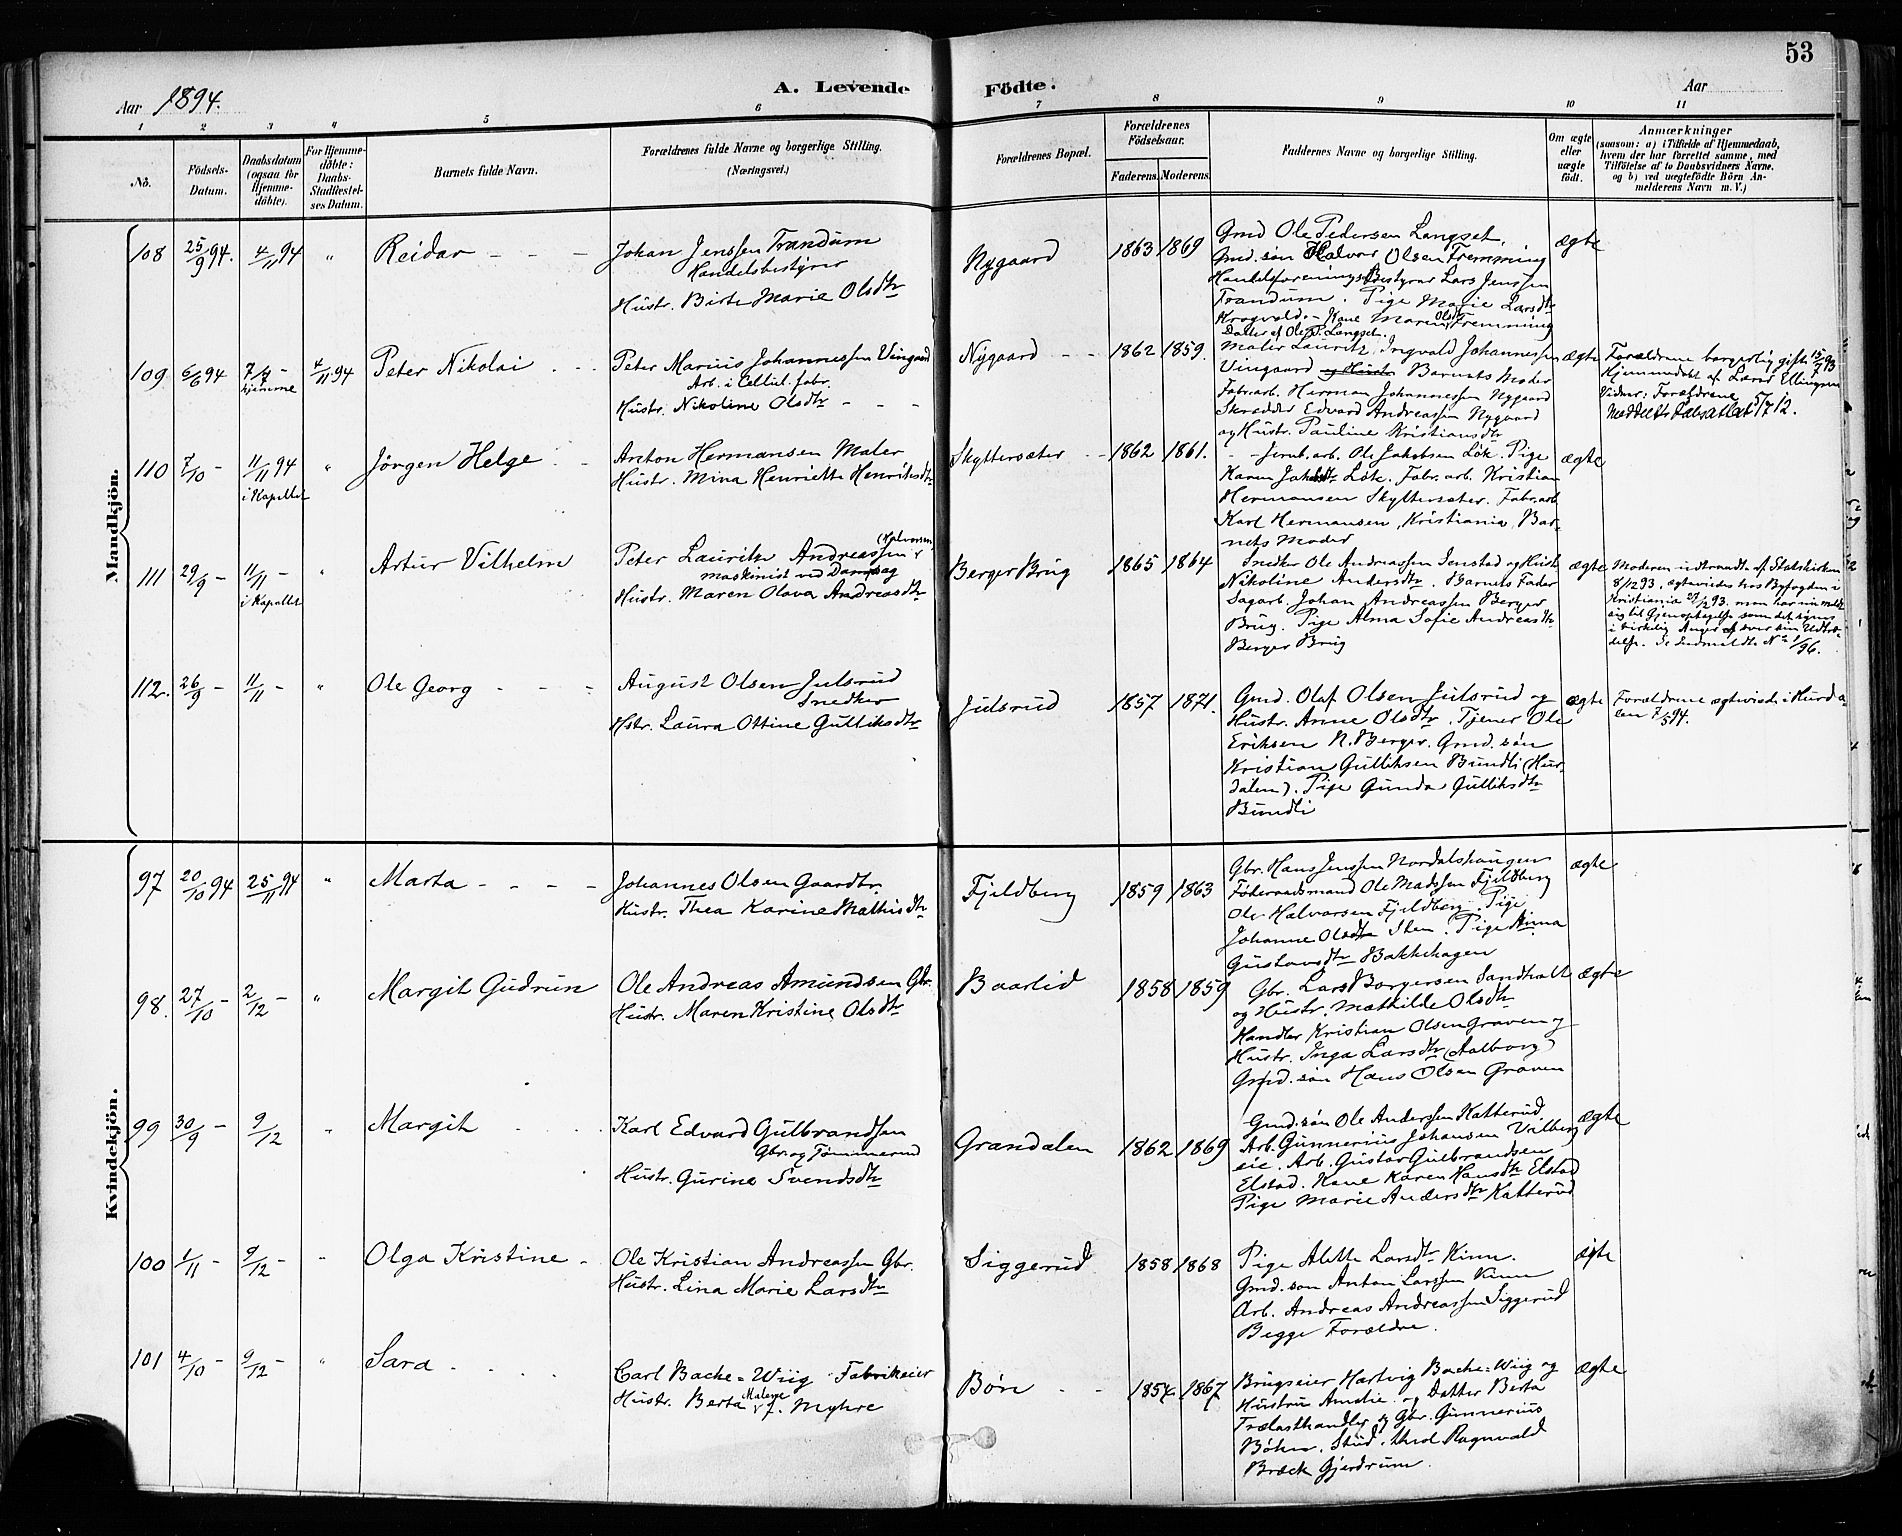 53
Aar 1894. A. Levende Födte. Aar
1 2 3 4 5 6 7 8 9 10 11
No. Födsels-Datum. Daabsdatum (ogsaa for Hjemme-döbte). For Hjemme-döbte: Daabs-Stadfestel-ses Datum. Barnets fulde Navn. Forældrenes fulde Navne og borgerlige Stilling. (Næringsvei.) Forældrenes Bopæl. Forældrenes Födselsaar. Faderens. Moderens. Faddernes Navne og borgerlige Stilling. Om ægte eller uægte födt. Anmærkninger (saasom: a) i Tilfælde af Hjemmedaab, hvem der har forrettet samme, med Tilföielse af to Daabsvidners Navne, og b) ved uægtefödte Börn Anmelderens Navn m. V.)
Mandkjön.
108 25/9 94. 4/11 94 " Reidar
Johan Jenssen Trandum
Handelsbestyrer
Hustr. Birte Marie Olsdtr
Nygaard 1863 1869
Gmd Ole Pedersen Langset,
Gmd. søn Halvor Olsen Fremming
Handelsforenings Bestyrer Lars Jenssen
Trandum. Pige Marie Larsdtr
Krogvold. - Kone Maren Olsdtr Fremming
Datter af Ole P. Langset.
ægte
109 6/6 94 7/9 - hjemme 4/11 94 Peter Nikolai
Peter Marius Johannessen Vingaard
Arb. i Cellul. fabr.
Hustr. Nikoline Olsdtr
Nygaard 1862 1859.
Maler Lauritz Ingvald Johannessen
Vingaard og Hustr Barnets Moder
Fabr.arb. Herman Johannessen Nygaard
Skrædder Edvard Andreassen Nygaard
og Hustr. Pauline Kristiansdtr
ægte
Forældrene borgerlig gifte 15/7 93
Hjemmedøbt af Lærer Ellingsen
Vidner: Forældrene
Meddelt 5/7 12.
110 7/10 - 11/11 94 i Kapellet " Jörgen Helge
Anton Hermansen Maler
Hustr. Mina Henriette Henriksdtr
Skyttersæter 1862 1861.
Jernb.arb. Ole Jakobsen Løk. Pige
Karen Løk. Fabr. arb. Kristian
Hermansen Skyttersæter. Fabr. arb
Karl Hermansen, Kristiania, Bar-
nets Moder
ægte
111 29/9 - 11/11 - i Kapellet " Artur Vilhelm
Peter Lauritz Andreassen (Halvorsen)
Maskinist ved Dampsag
Hustr. Maren Olava Andreasdtr
Berger Brug 1865 1864
Snedker Ole Andreassen Jenstad og Hustr
Nikoline Andersdtr. Barnets Fader
Sagarb. Johan Andreassen Berger
Brug. Pige Alma Sofie Andreasdtr
Berger Brug
ægte
Moderen indtraadt af Statskirken
8/12 93. ægteviedes hos Byfogden i
Kristiania 29/12 93. men har nu meldt
sig til Gjenoptagelse som det synes
i virkelig Anger over sin Udtræ-
delse. Se Indmeldte No 1/96.
112. 26/9 - 11/11 - " Ole Georg
August Olsen Julsrud
Snedker
Hstr. Laura Ottine Gulliksdtr
Julsrud 1857 1871.
Gmd. Olaf Olsen Julsrud og
Hustr. Anne Olsdtr. Tjener Ole
Eriksen N. Berger. Gmd. søn
Kristian Gulliksen Bundli (Hur-
dalen). Pige Gunda Gulliksdtr
Bundli
ægte
Forældrene ægteviede i Hurda-
len 7/5 94.
Kvindekjön.
97 20/10 94 25/11 94 " Marta
Johannes Olsen Gaardbr.
Hustr. Thea Karine Mathisdtr
Fjeldberg 1859 1863
Gbr. Hans Jenssen Nordalshaugen
Föderaadsmand Ole Madssen Fjeldberg
Ole Halvorsen Fjeldberg. Pige
Johanne Olsdtr Sten. Pige Anna
Gustavsdtr Bakkehagen
ægte
98. 27/10 - 2/12 - " Margit Gudrun
Ole Andreas Amundsen Gbr.
Hustr. Maren Kristine Olsdtr
Baarlid 1858 1859
Gbr. Lars Borgersen Sandholt
og Hustr. Mathilde Olsdtr
Handler Kristian Olsen Graven og
Hustr. Inga Larsdtr (Aalborg)
Gmd. søn Hans Olsen Graven
ægte
99 30/9 - 9/12 " Margit
Karl Edvard Gulbrandsen
Gbr. og Tømmermd
Hustr. Gurine Svendsdtr
Grandalen 1862 1869
Gmd. søn Ole Anderssen Katterud
Arb. Gunnerius Johansen Vilberg
eie. Arb. Gustav Gulbrandsen
Elstad. Kone Karen Hansdtr Elstad
Pige Marie Andersdtr Katterud
ægte
100 1/11 - 9/12 - " Olga Kristine
Ole Kristian Andreassen Gbr.
Hustr. Lina Marie Larsdtr
Siggerud 1858 1868
Pige Alette Larsdtr Kinn.
Gmd. søn Anton Larssen Kinn
Arb. Andreas Andreassen Siggerud
Begge Forældre.
ægte
101 4/10 - 9/12 - " Sara
Carl Bache=Wiig Fabrikeier
Hustr. Berta Malene f. Myhre
Bøn 1854 1867
Brugseier Hartvig Bache=Wiig og
Hustru Amalie og Datter Berta
Trælasthandler & Gbr. Gunnerius
Bøhn. Stud. Ragnvald
Bræck Gjerdrum.
ægte